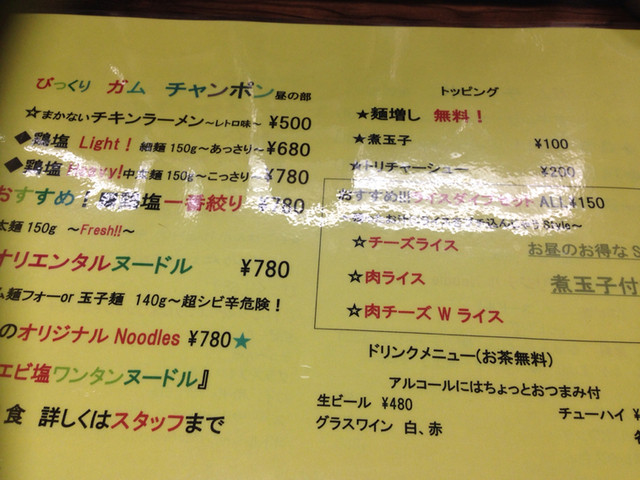 びっくり ガム チャンポン 昼の部
☆まかないチキンラーメン～レトロ味～ ¥500
◆鶏塩 Light！ 細麺 150g～あっさり～ ¥680
◆鶏塩 Heavy!中太麺 150g～こってり～ ¥780
おすすめ！ 鶏塩一番絞り ¥780
太麺 150g ～Fresh!!～
オリエンタルヌードル ¥780
麺フォーor 玉子麺 140g～超シビ辛危険！
のオリジナル Noodles ¥780★
エビ塩ワンタンヌードル』
食 詳しくはスタッフまで
トッピング
★麺増し 無料！
★煮玉子 ¥100
★トリチャーシュー ¥200
おすすめ!!!ライスダイブセット ALL ¥150
Style～
☆チーズライス
お昼のお得な S
☆肉ライス
煮玉子付
☆肉チーズ W ライス
ドリンクメニュー(お茶無料)
アルコールにはちょっとおつまみ付
生ビール ¥480
チューハイ ¥
グラスワイン 白、赤